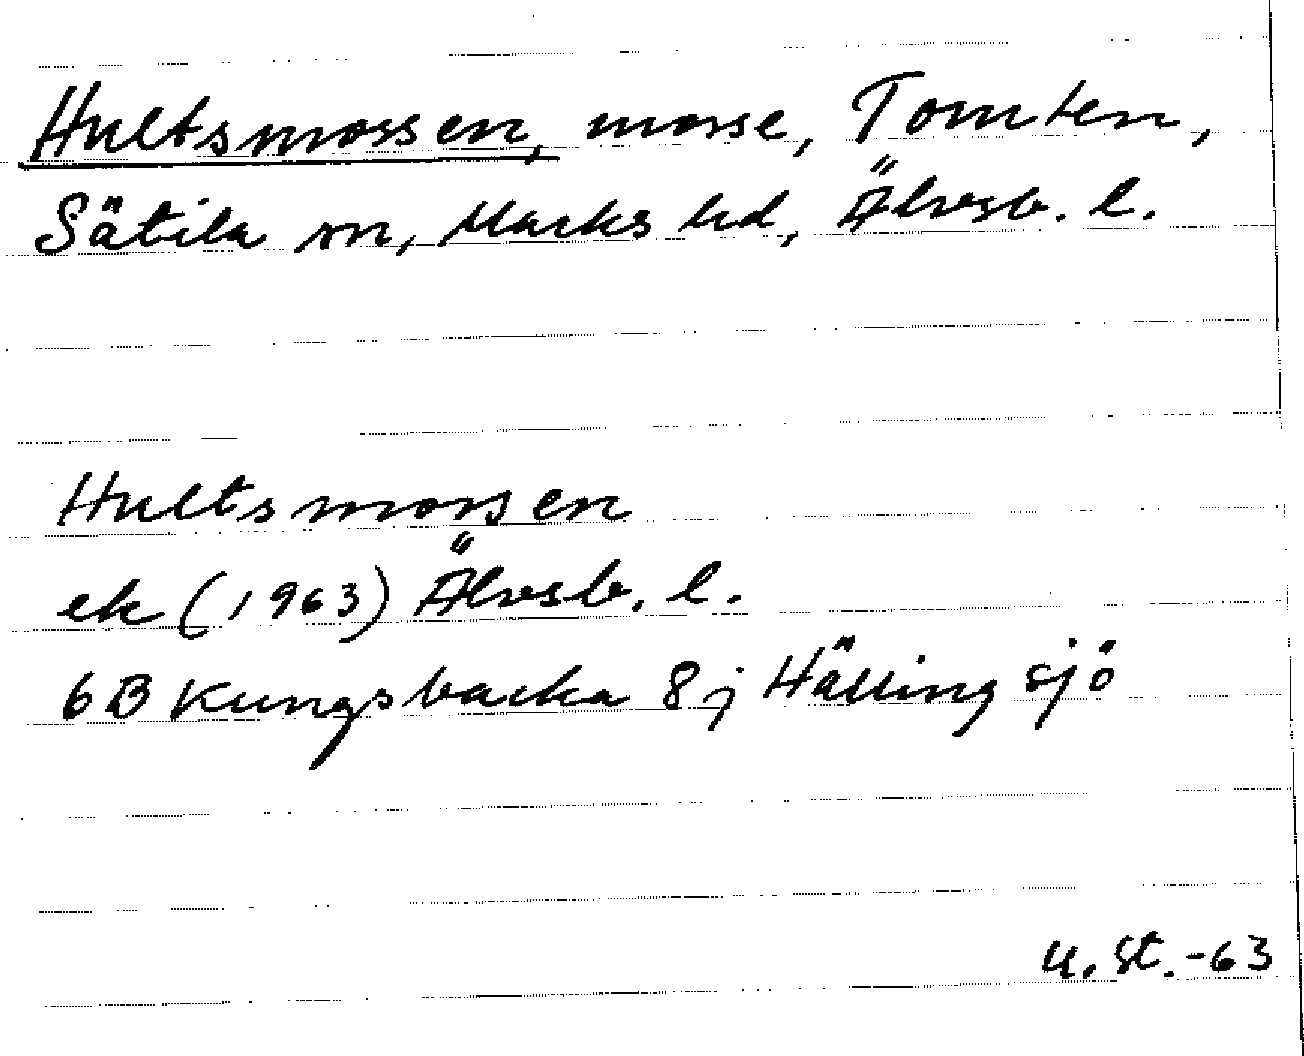 Hultsmossen, mosse, Tomten,
Sätila sn, Marks hd, Älvsb. l.
Hultsmossen
ek (1963) Älvsb. l.
6B Kungsbacka 8j Hällingsjö
U. St. -63